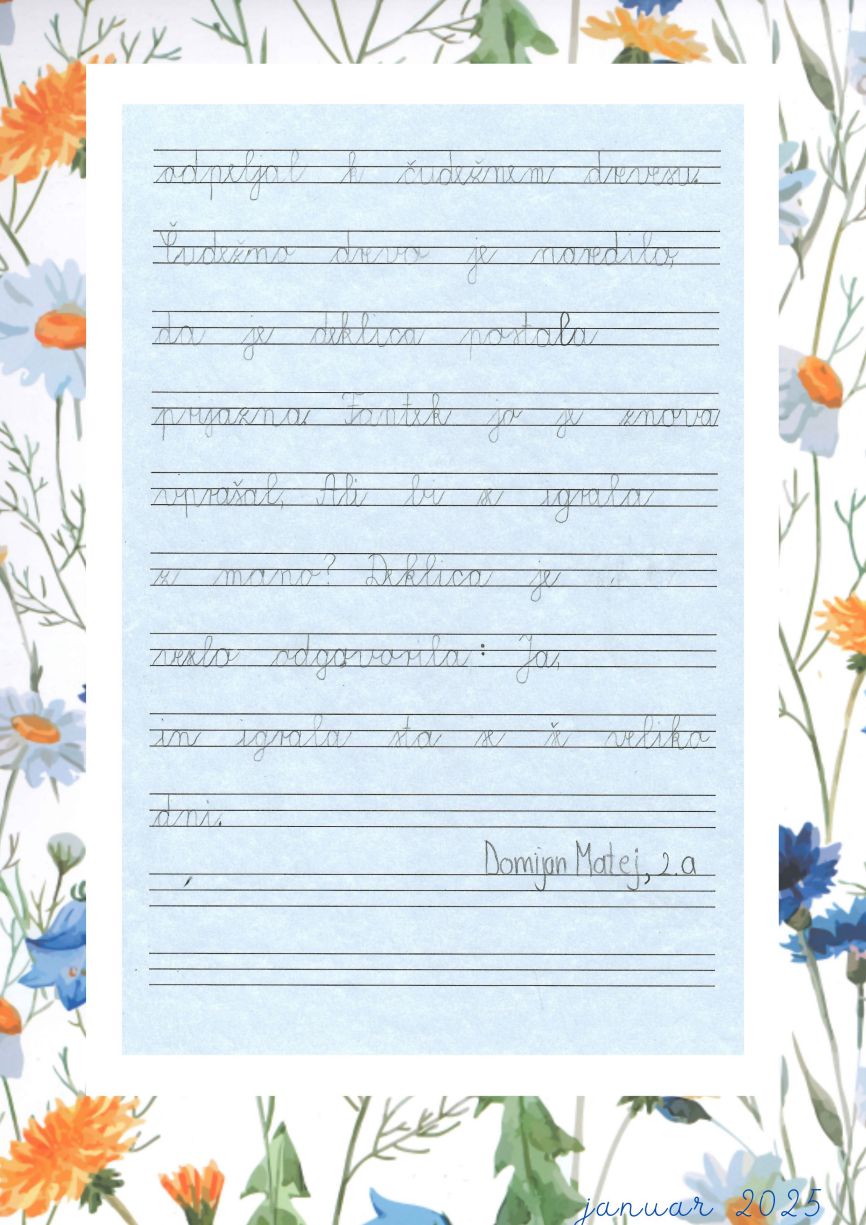 odpeljal k čudežnem drevesu.
Čudežno drevo je naredilo,
da je deklica postala
prijazna. Fantek jo je znova
vprašal, Ali bi se igrala
z mano? Deklica je
vesela odgovorila: Ja,
in igrala sta se še veliko
dni.
Domijan Matej, 2.a
januar 2025